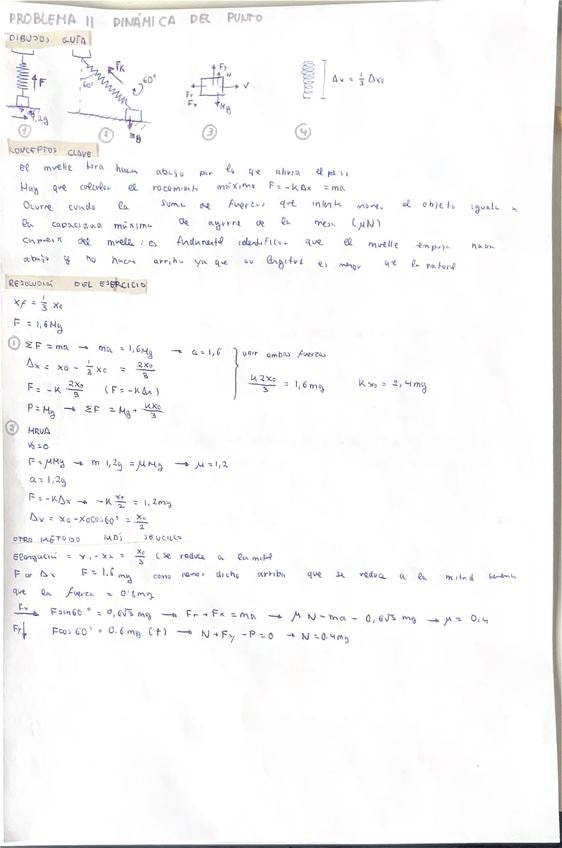 PROBLEMA 11 DINÁMICA DEL PUNTO
DIBUJOS GUÍA
F
1,2g
①
FK
60°
60°
mg
②
Fy
N
Fr
Fx
V
Mg
③
Δx = 1/3 Δx0
④
CONCEPTOS CLAVE
El muelle tira hacia abajo por lo que alivia el peso
Hay que calcular el rozamiento máximo F=-KΔx = ma
Ocurre cuando la suma de fuerzas que intenta mover el objeto iguala a
la capacidad máxima de agarre de la mesa (μN)
del muelle: es fundamental identificar que el muelle empuja hacia
abajo y no hacia arriba ya que su longitud es menor que la natural
RESOLUCIÓN DEL EJERCICIO
xf = 1/3 x0
F = 1,6Mg
① ΣF = ma → ma = 1,6Mg → a = 1,6
Δx = x0 - 1/3 x0 = 2x0/3
F = -K 2x0/3 (F = -KΔx)
P = Mg → ΣF = Mg + Kx0/3
unir ambas fuerzas
K2x0/3 = 1,6mg Kx0 = 2,4mg
② MRUA
V0 = 0
F = μMg → m 1,2g = μMg → μ = 1,2
a = 1,2g
F = -KΔx → -K x0/2 = 1,2mg
Δx = x0 - x0cos60° = x0/2
OTRO MÉTODO MÁS SENCILLO
Elongación = x1 - x2 = x0/3 (se reduce a la mitad
F α Δx F = 1.6mg como hemos dicho arriba que se reduce a la mitad
que la fuerza = 0'8mg
Fx → Fsin60° = 0,6√3 mg → Fr + Fx = ma → μ N = ma - 0,6√3 mg → μ = 0.4
Fy↓ Fcos60° = 0.6mg (↑) → N + Fy - P = 0 → N = 0.4mg